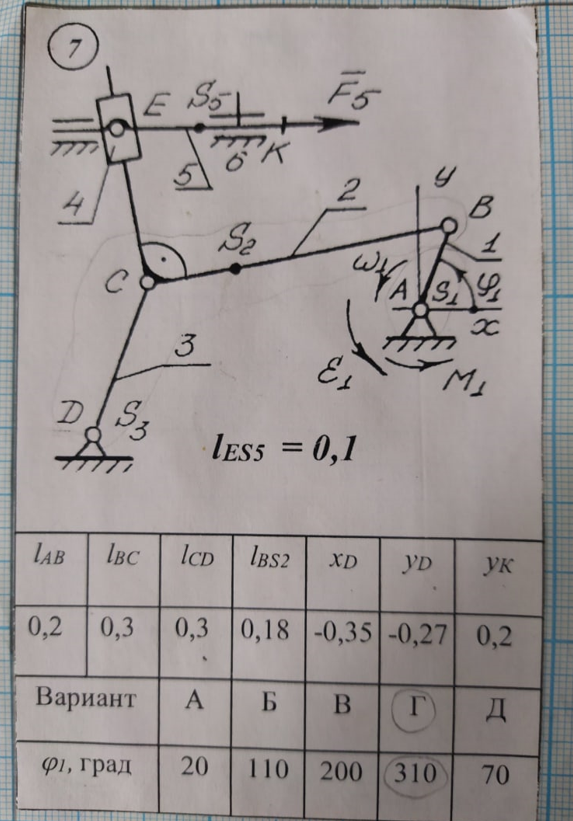 7
E S5 F5
6 K
5
4
2
y
B
S2
1
ω1
A S1 φ1
C
x
3
ε1
M1
D S3
lES5 = 0,1
lAB lBC lCD lBS2 xD yD yK
0,2 0,3 0,3 0,18 -0,35 -0,27 0,2
Вариант А Б В Г Д
φ1, град 20 110 200 310 70